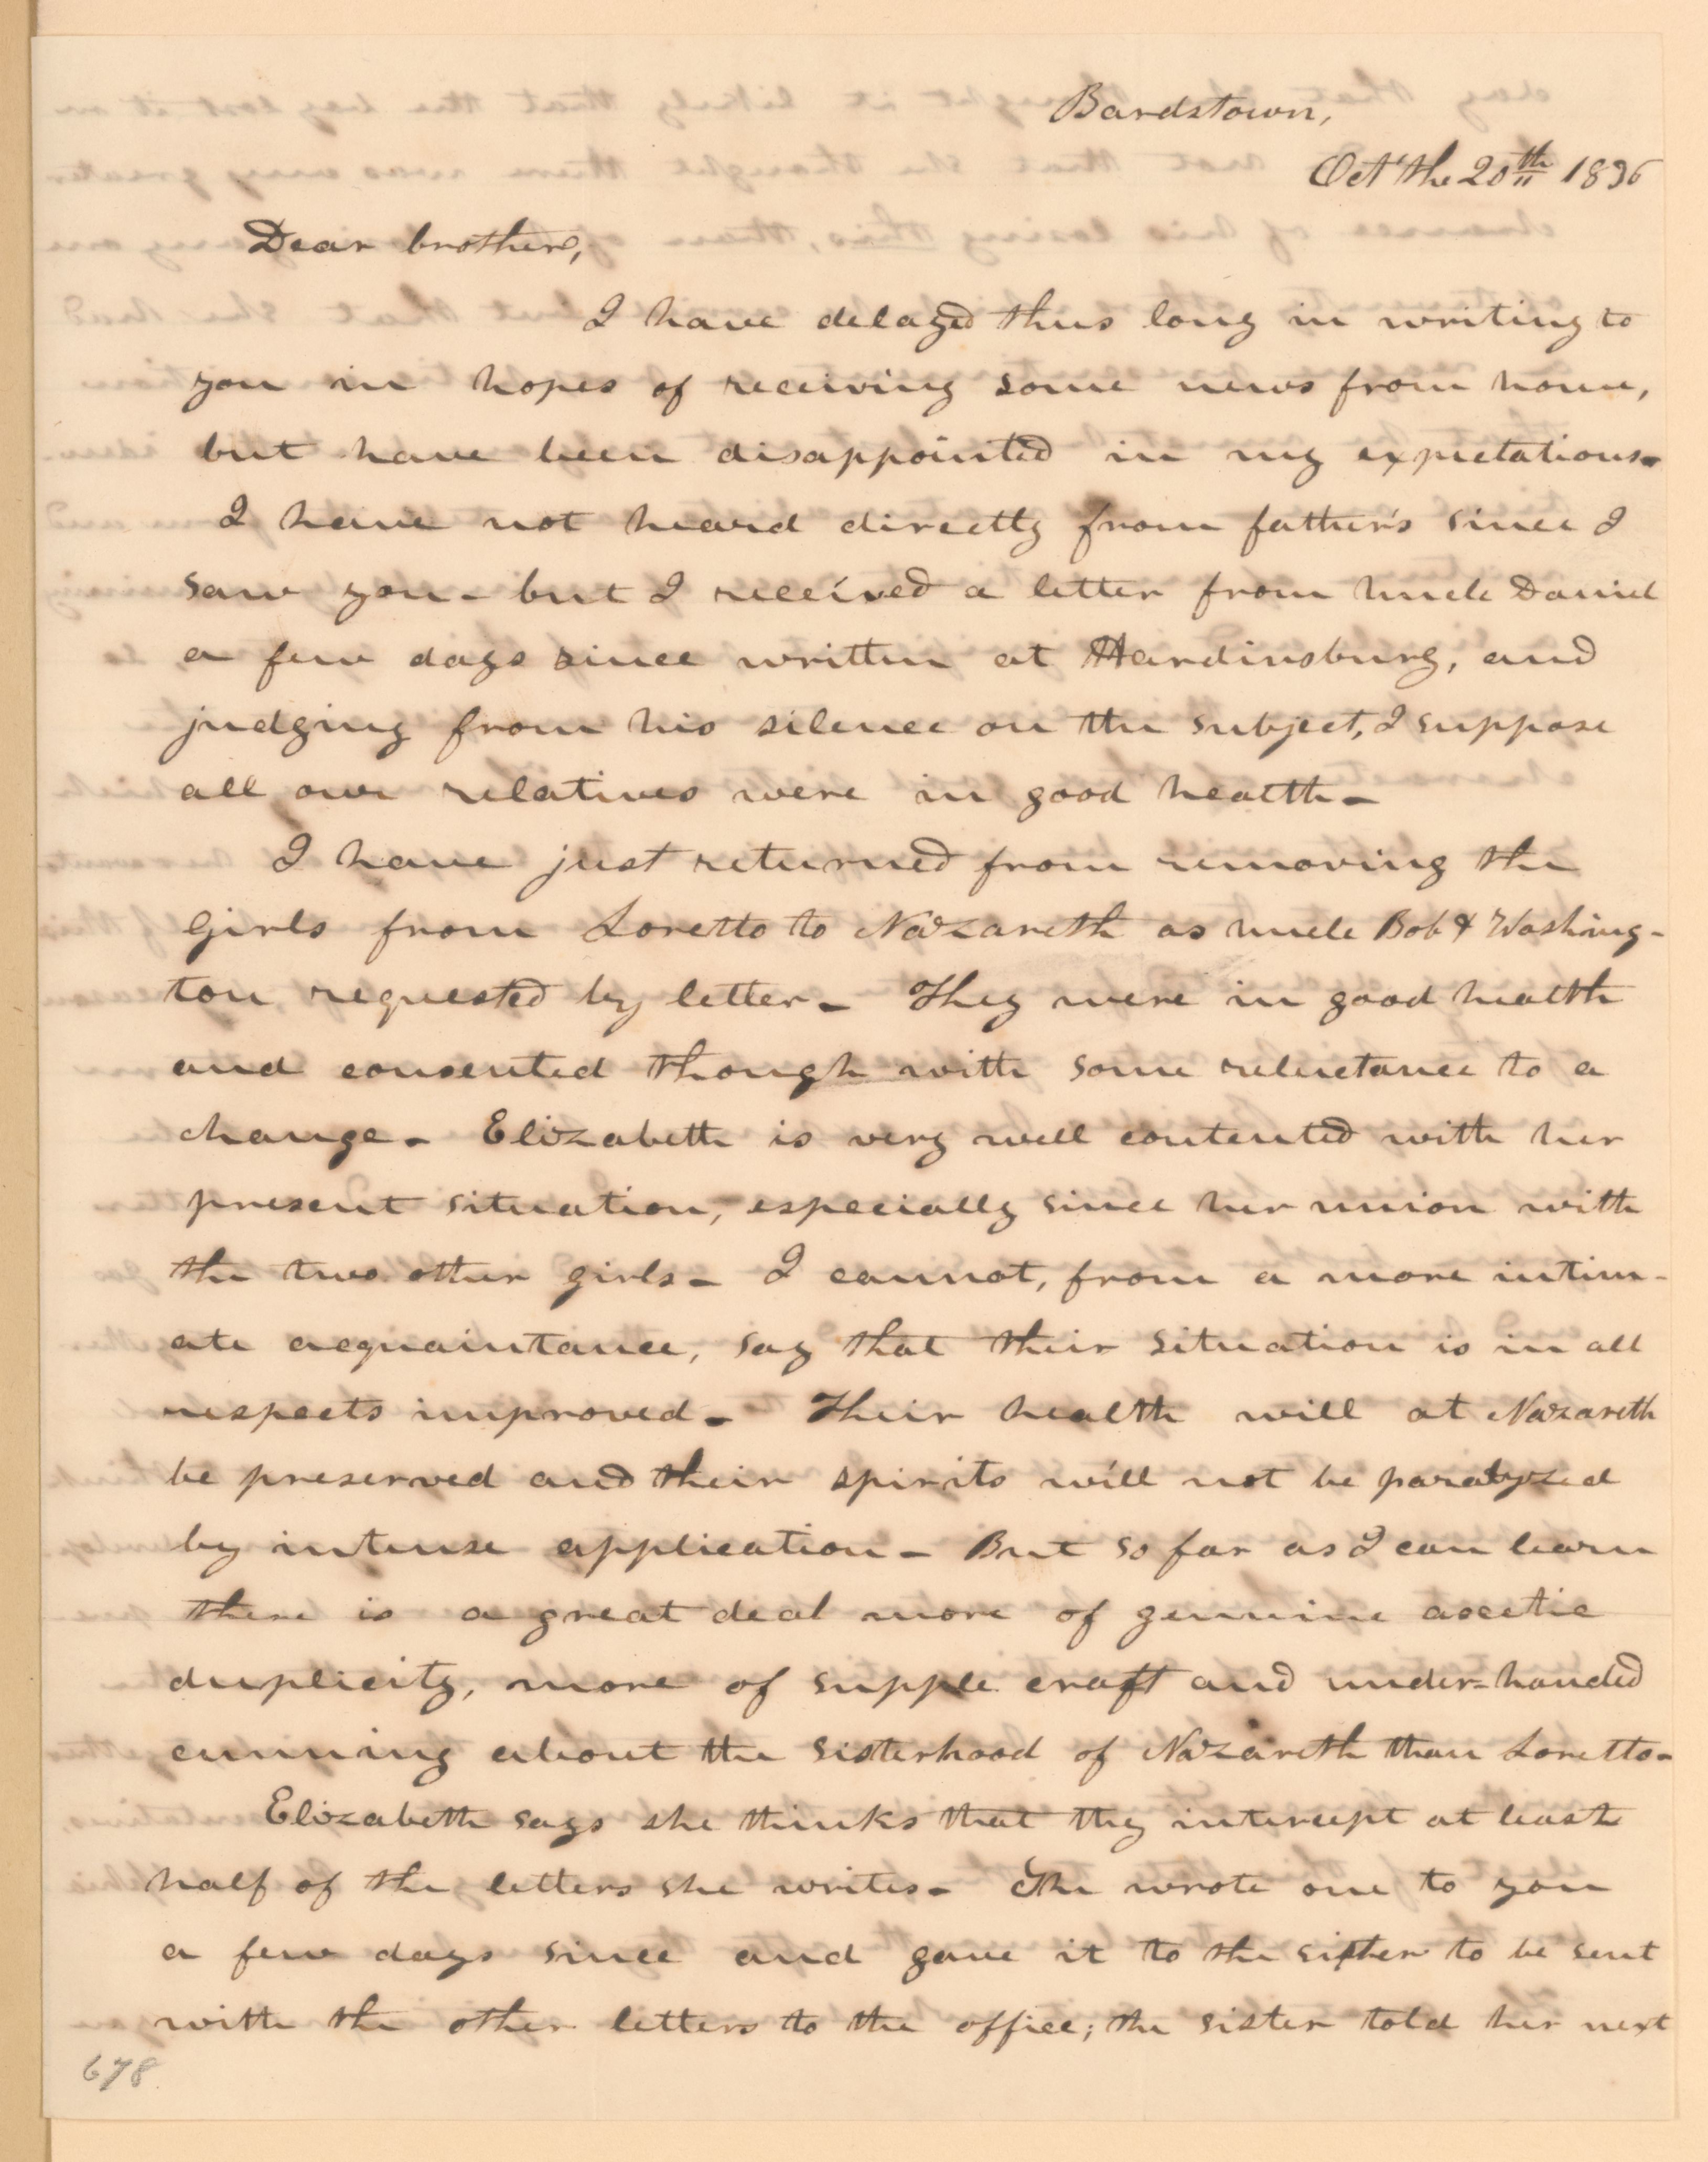 Bardstown,
Oct the 20th 1836
Dear brother,
I have delayed thus long in writing to
you in hopes of receiving some news from home,
but have been disappointed in my expectations-
I have not heard directly from father's since I
saw you - but I received a letter from Uncle Daniel
a few days since written at Hardinsburg, and
judging from his silence on the subject, I suppose
all our relatives were in good health-
I have just returned from removing the
girls from Loretto to Nazareth as uncle Bob & Washing-
ton requested by letter - They were in good health
and consented though with some reluctance to a
change - Elizabeth is very well contented with her
present situation, especially since her union with
the two other girls - I cannot, from a more intim-
ate acquaintance, say that their situation is in all
respects improved - Their health will at Nazareth
be preserved and their spirits will not be paralyzed
by intense application - But so far as I can learn
there is a great deal more of genuine ascetic
duplicity, more of supple craft and under-handed
cunning about the sisterhood of Nazareth than Loretto-
Elizabeth says she thinks that they intercept at least
half of the letters she writes - She wrote one to you
a few days since and gave it to the sister to be sent
with the other letters to the office; the sister told her next
678